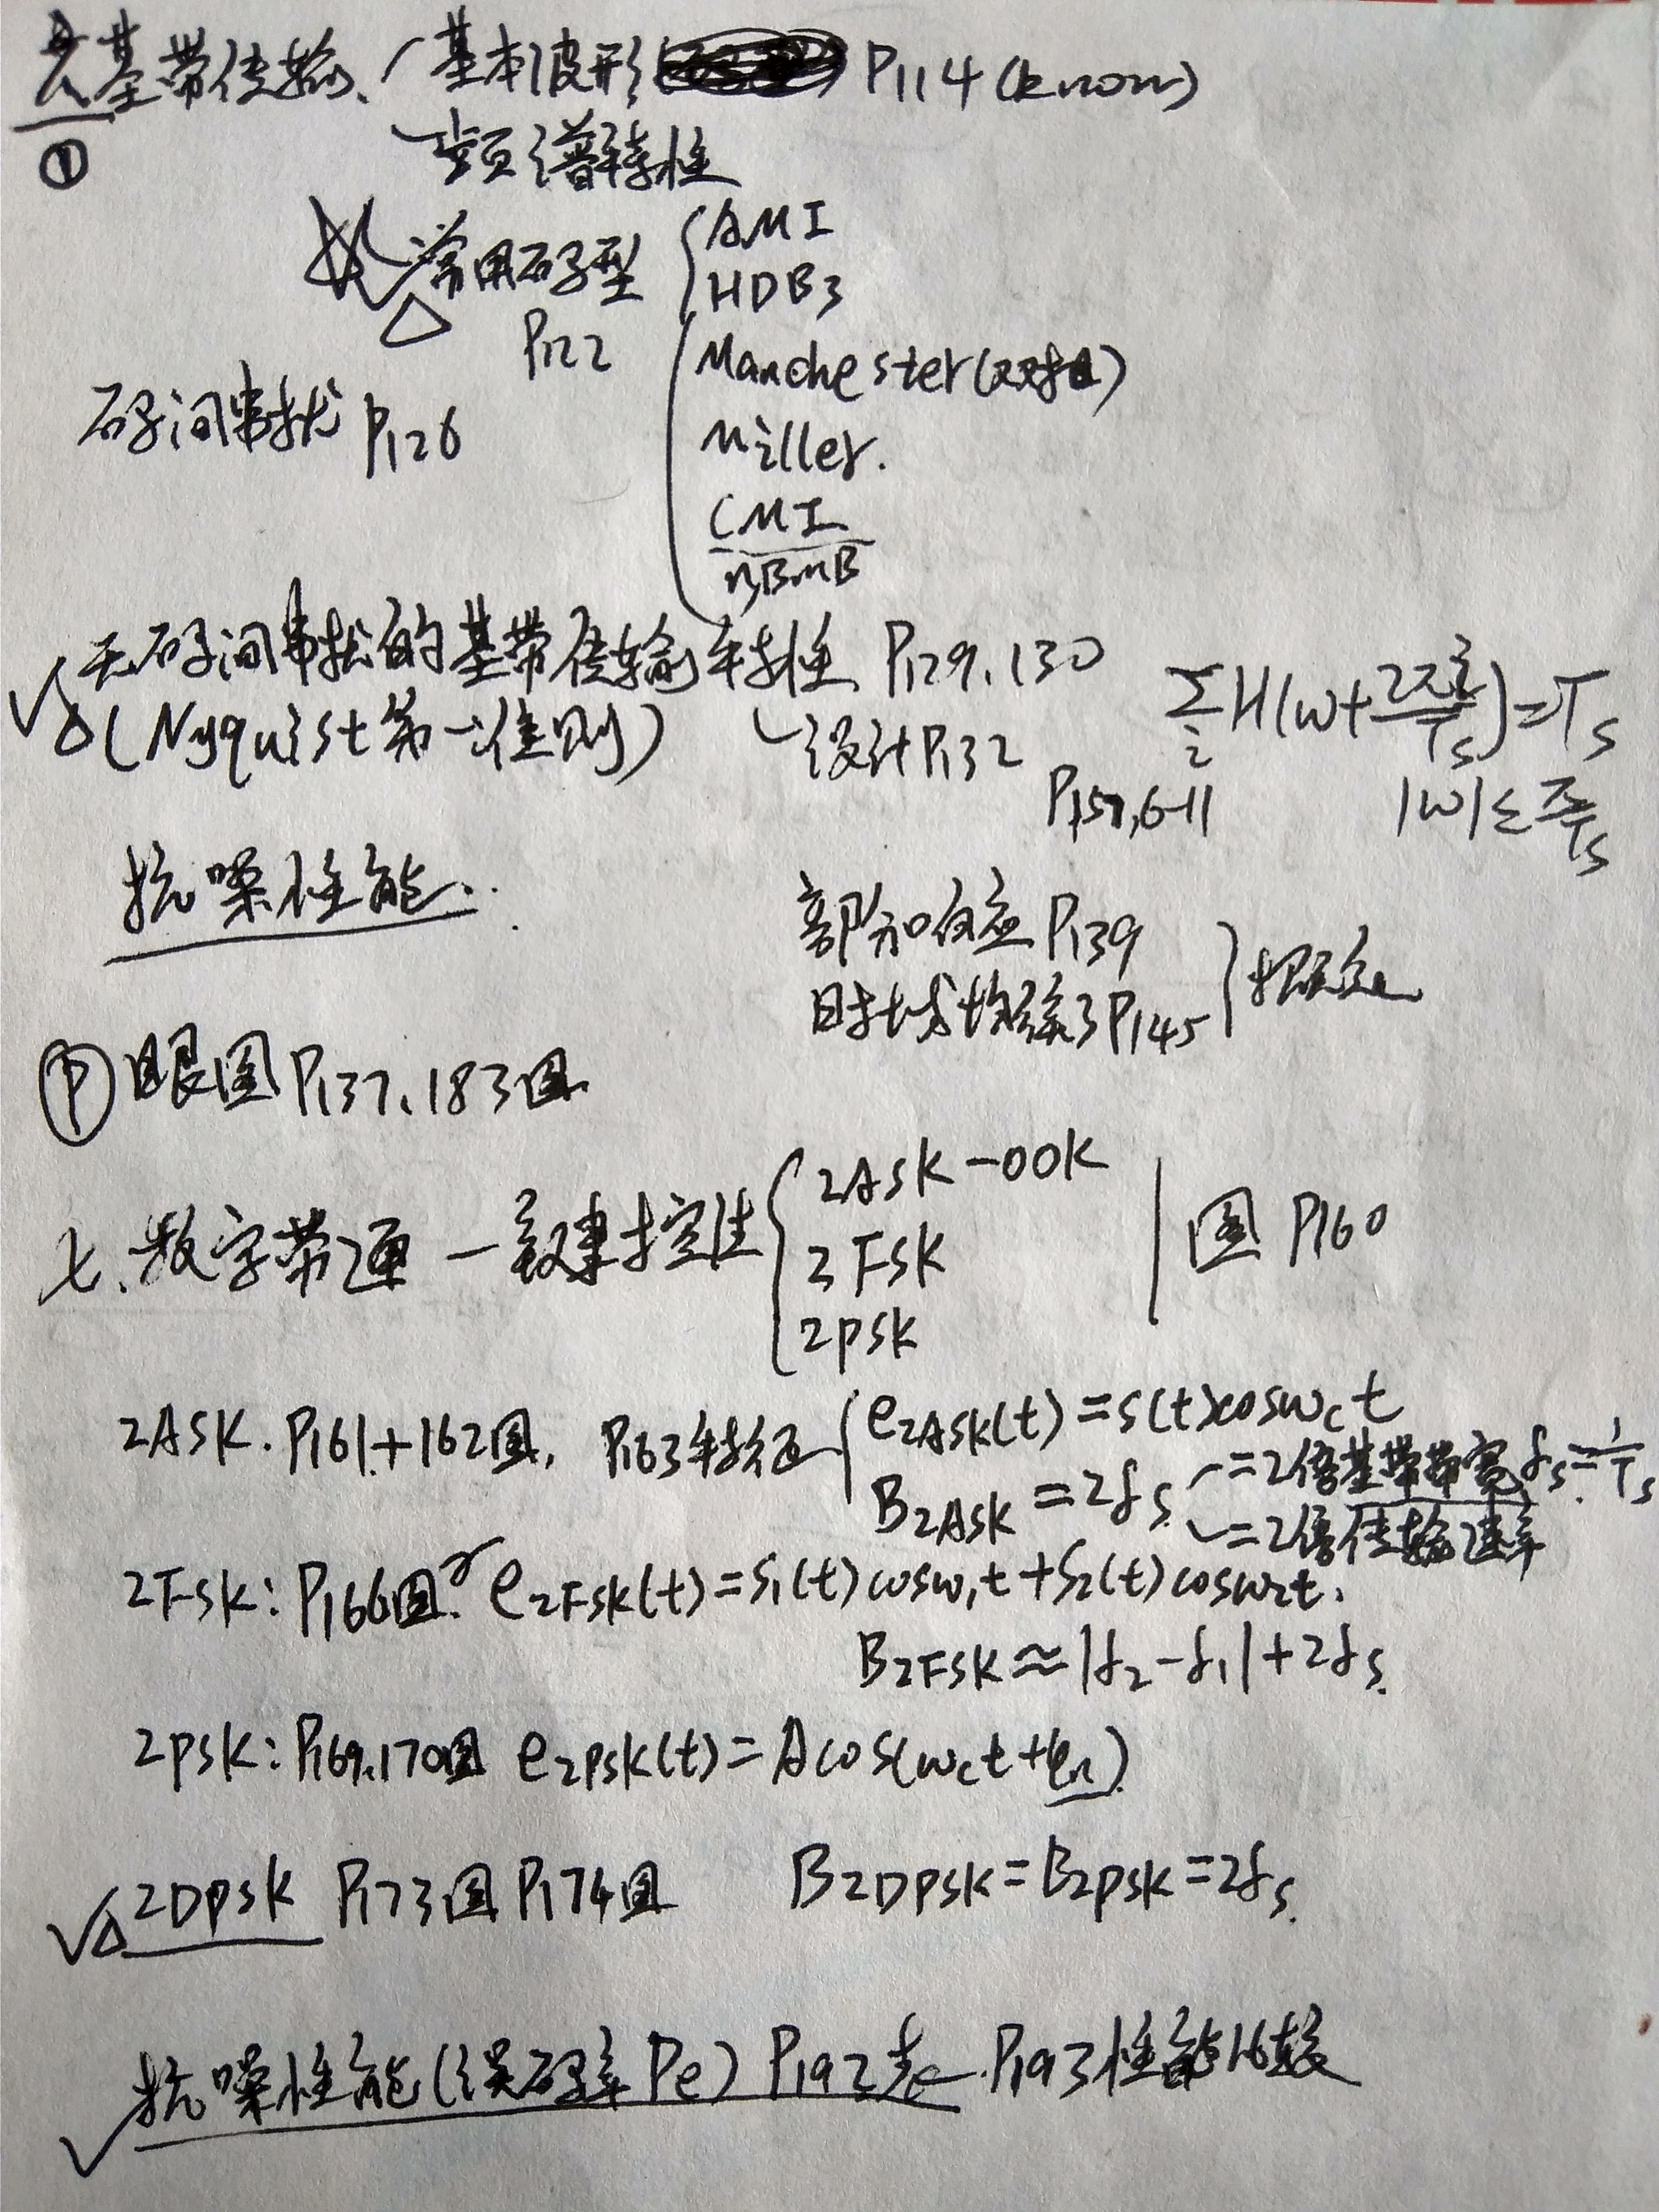 六 基带传输、基本波形 P114 (know)
①
频谱特性
常用码型 P122
AMI
HDB3
Manchester (双相)
Miller.
CMI
nBmB
码间串扰 P126
无码间串扰的基带传输特性 P129、130
(Nyquist第一准则) 设计P132
ΣH(ω+2πi/Ts)=Ts
i
P157,6-11 |ω|≤π/Ts
抗噪性能
部分响应 P139
时域均衡 P145
眼图 P137、183图
七、数字带通 — 键控法
2ASK-OOK
2FSK
2PSK
图 P160
2ASK. P161+162图, P163特征
e2ASK(t)=s(t)cosωct
B2ASK=2fs =2倍基带带宽 fs=1/Ts
=2倍传输速率
2FSK: P166图 e2FSK(t)=S1(t)cosω1t+S2(t)cosω2t.
B2FSK≈|f2-f1|+2fs
2PSK: P169.170图 e2PSK(t)=Acos(ωct+φn)
2DPSK P173图 P174图 B2DPSK=B2PSK=2fs.
抗噪性能(误码率Pe) P192表 P193性能比较